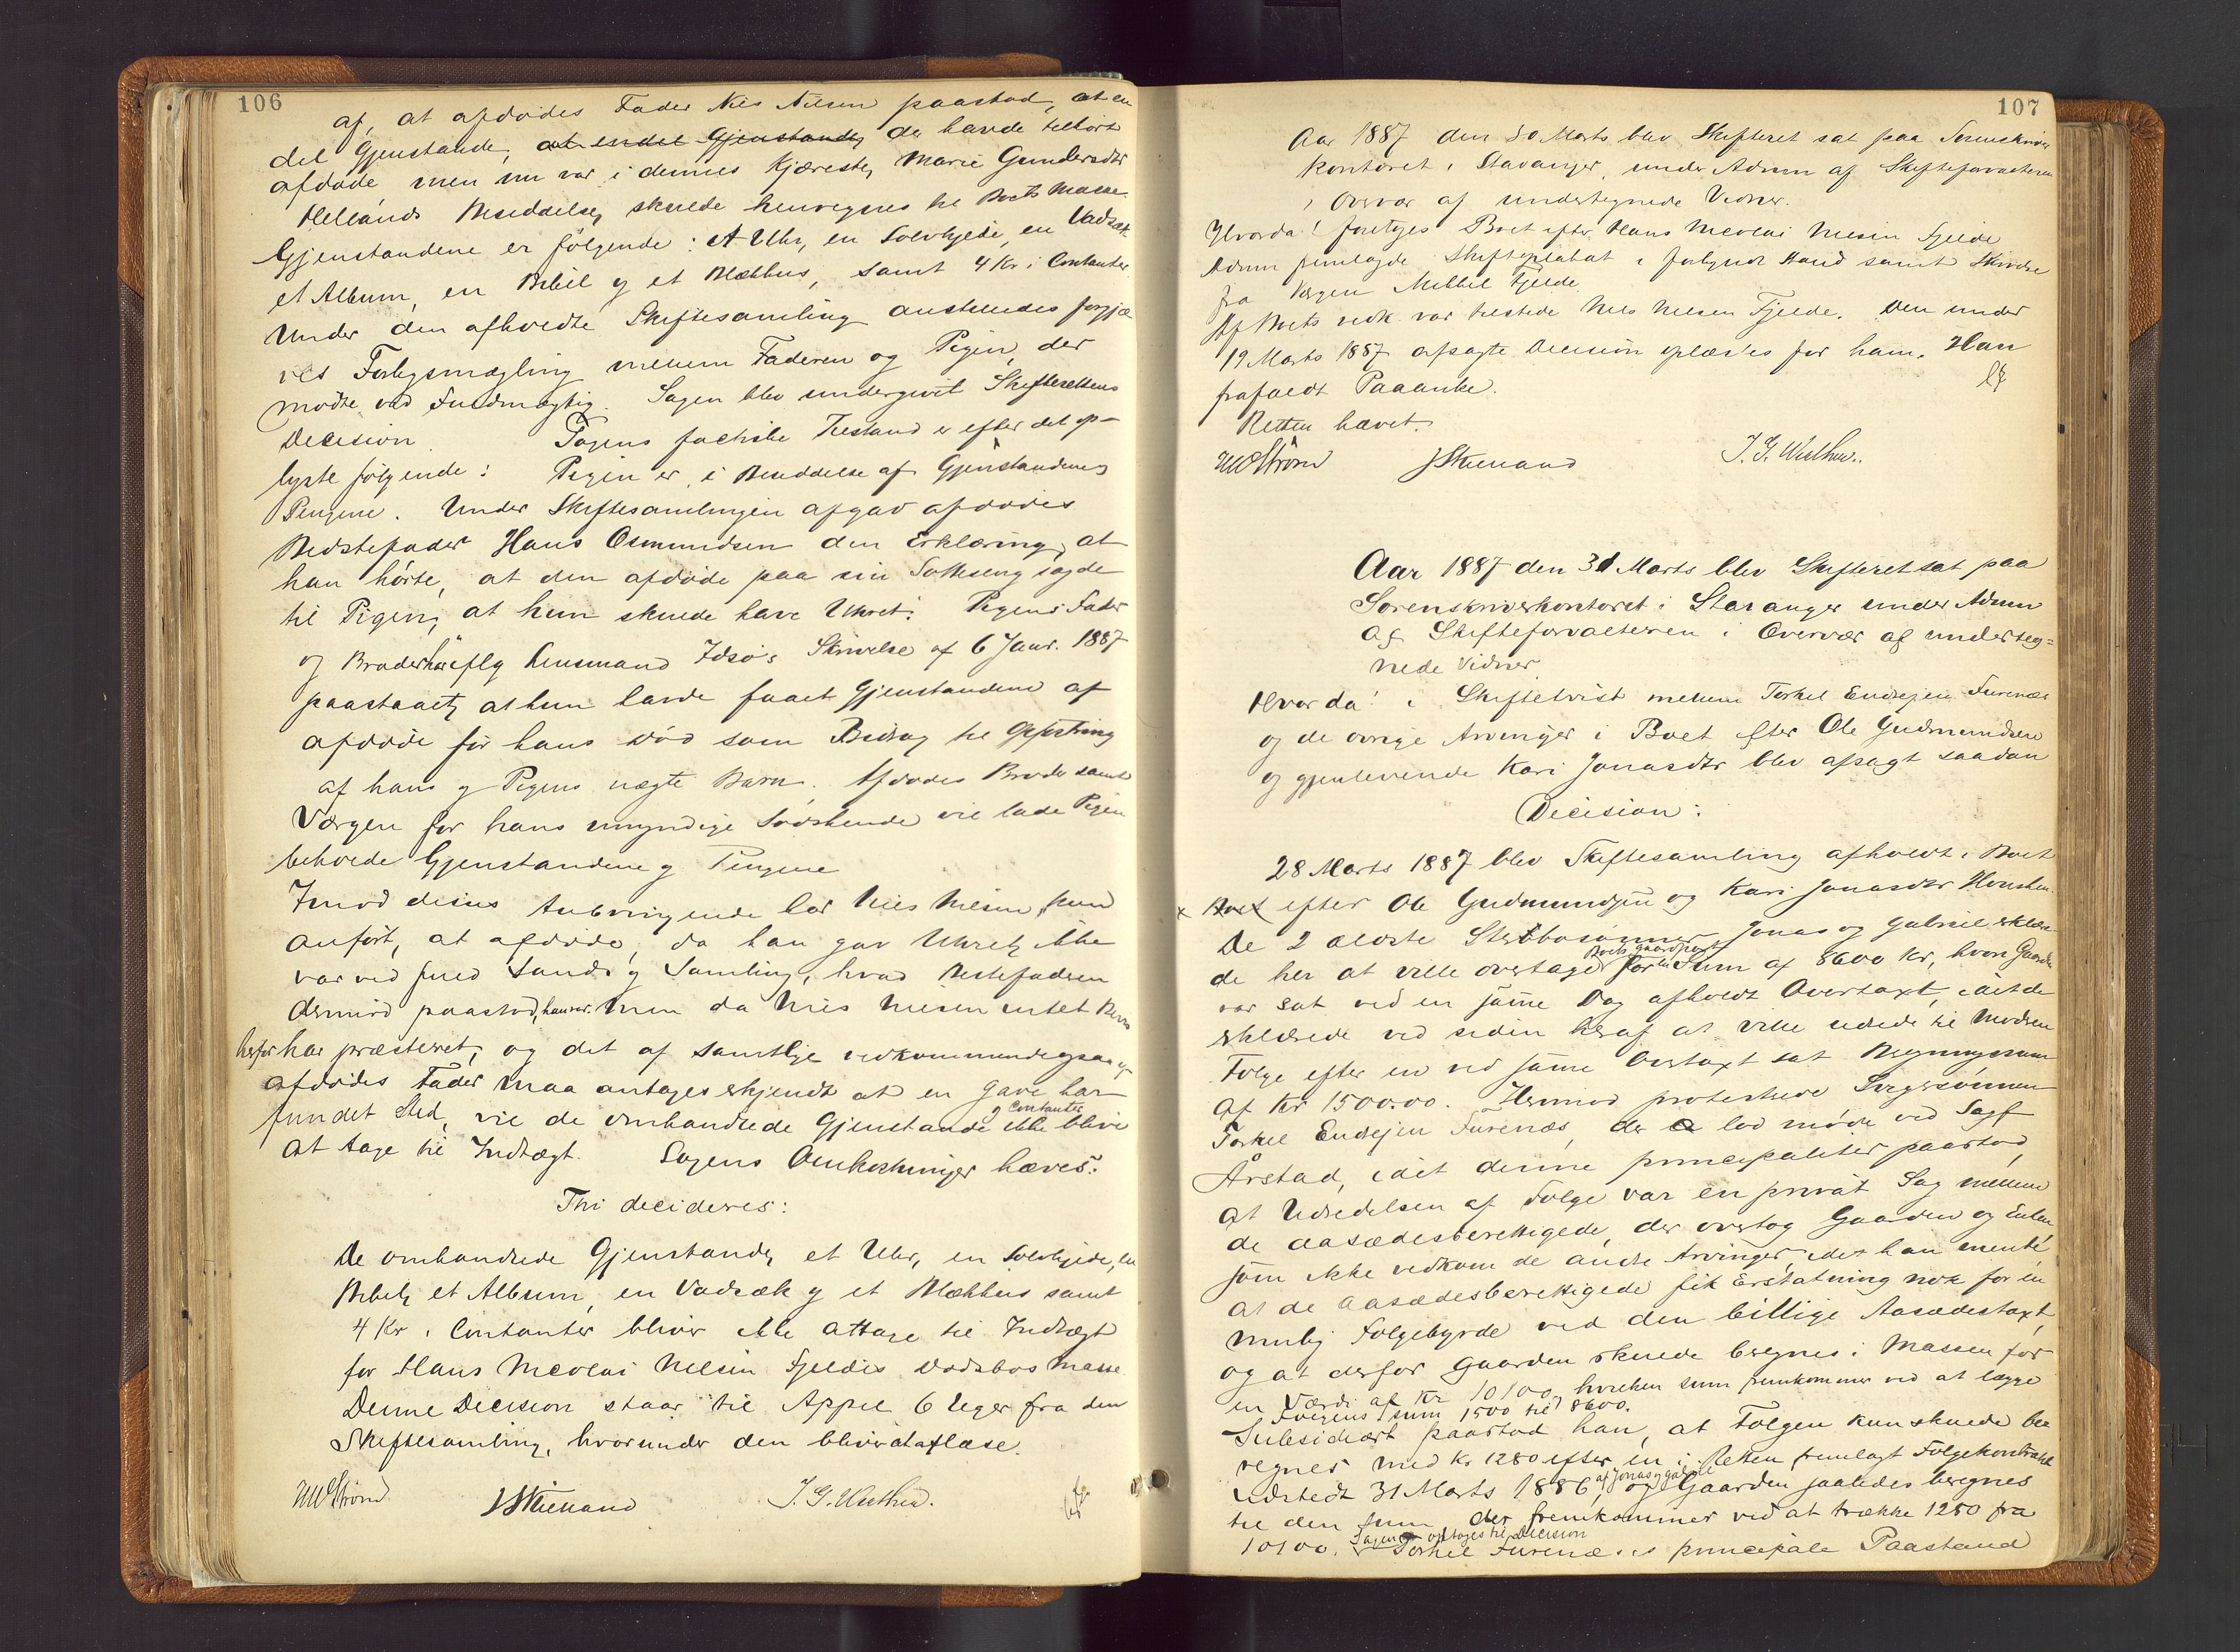 106
af, at afdødes Fader Nils Nilsen paastod, at en
del Gjenstande, at endel Gjenstande, der havde tilhørt
afdøde men nu var i dennes Kjæreste, Marie Gundersdtr
Hellands Besiddelse, skulde henregnes til Boets Masse.
Gjenstandene er følgende: Et Uhr, en Sølvkjede, en Vadsæk
et Album, en Bibel og et Blækhus, samt 4 Kr i Contanter
Under den afholdte Skiftesamling anstilledes forgjæ
ves Forligsmægling mellem Faderen og Pigen, der
mødte ved Fuldmægtig. Sagen blev undergivet Skifterettens
Decision Sagens factiske Tilstand er efter det op-
lyste følgende: Pigen er i Besiddelse af Gjenstandene og
Pengene. Under Skiftesamlingen afgav afdødes
Bedstefader Hans Osmundsen den Erklæring, at
han hørte, at den afdøde paa sin Sotteseng sagde
til Pigen, at hun skulde have Uhret. Pigens Fader
og Broder har iflg Lensmand Idsøs Skrivelse af 6 Januar. 1887
paastaaet, at hun havde faaet Gjenstandene af
afdøde før hans Død som Bidrag til Opfostring
af hans og Pigens uægte Barn. Afdødes Broder samt
Værgen for hans umyndige Sødskende vil lade Pigen
beholde Gjenstandene og Pengene
Imod disses Anbringende har Nils Nilsen kun
anført, at afdøde, da han gav Uhret, ikke
var ved fuld Sands og Samling, hvad Bestefaderen
derimod paastod, han var. Men da Nils Nilsen intet Bevis
herfor har præsteret, og det af samtlige vedkommende ogsaa af
afdødes Fader maa antages erkjendt at en Gave har
fundet Sted, vil de omhandlede Gjenstande og Contanter ikke blive
at tage til Indtægt. Sagens Omkostninger hæves.
Thi decideres:
De omhandlede Gjenstande, et Uhr, en Sølvkjede, en
Bibel, et Album, en Vadsæk og et Blækhus samt
4 Kr i Contanter bliver ikke at tage til Indtægt
for Hans Nicolai Nilsen Fjeldes Dødsbos Masse
Denne Decision staar til Appel 6 Uger fra den
Skiftesamling, hvorunder den bliver at aflæse.
J. G. Wisthus.
107
Aar 1887 den 30 Marts blev Skifteret sat paa Sorenskriver
kontoret i Stavanger, under Admn af Skifteforvalteren
i Overvær af undertegnede Vidner.
Hvorda! foretoges Boet efter Hans Nicolai Nilsen Fjelde
Admn fremlagde Skifteplakat i forkyndt Stand samt Skrivelse
fra Værgen Mikkel Fjelde.
Af Boets vedk. var tilstede Nils Nilsen Fjelde. Den under
19 Marts 1887 afsagte Decision oplæstes for ham. Han
frafaldt Paaanke.
Retten hævet.
J. G. Wisthus.
Aar 1887 den 31 Marts blev Skifteret sat paa
Sorenskriverkontoret i Stavanger under Admn
af Skifteforvalteren i Overvær af underteg=
nede Vidner
Hvorda! i Skiftetvist mellem Torkel Endresen Furenæs
og de øvrige Arvinger i Boet efter Ole Gudmundsen
og gjenlevende Kari Jonasdtr blev afsagt saadan
Decision:
28 Marts 1887 blev Skiftesamling afholdt i Boet
x Boet efter Ole Gudmundsen og Kari Jonasdtr
De 2 ældste Stervbosønner Jonas og Gabriel erklære
de her at ville overtage Boets gaardpart for en Sum af 8600 Kr, hvori Gaarden
var sat ved en samme Dag afholdt Overtaxt, idet de
erklærede ved siden heraf at ville udrede til Moderen
Følge efter en ved samme Overtaxt sat Beregningssum
af Kr 1500.00. Herimod protesterede Svigersønnen
Torkel Endresen Furenæs, der lod møde ved Sagf
Årstad, idet denne principaliter paastod,
at Udredelsen af Følge var en privat Sag mellem
de aasædesberettigede, der overtog Gaarden og Enken
som ikke vedkom de andre Arvinger, idet han mente
at de aasædesberettigede fik Erstatning nok for en
mulig Følgebyrde ved den billige Aasædestaxt,
og at derfor Gaarden skulde beregnes i Massen for
en Værdi af Kr 10100, hvilken sum fremkommer ved at lægge
Følgens sum 1500 til 8600.
Subsidiært paastod han, at Følgen kun skulde be
regnes med Kr 1280 efter en i Retten fremlagt Følgekontrakt
udstedt 31 Marts 1886 af Jonas og Gabriel, og Gaarden saaledes beregnes
til den sum der fremkommer ved at trække 1280 fra
10100. Sagen optoges til Decision Torkel Furenæses principale Paastand